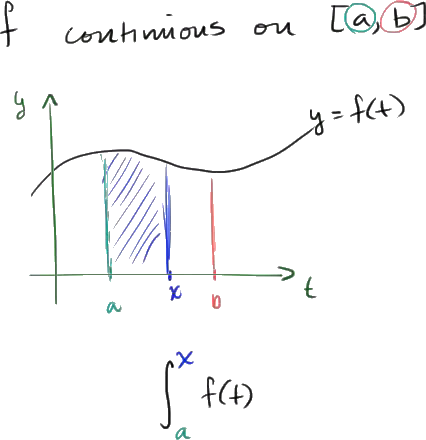 f continuous on [a, b]
y
y = f(t)
a
x
b
t
∫ₐˣ f(t)